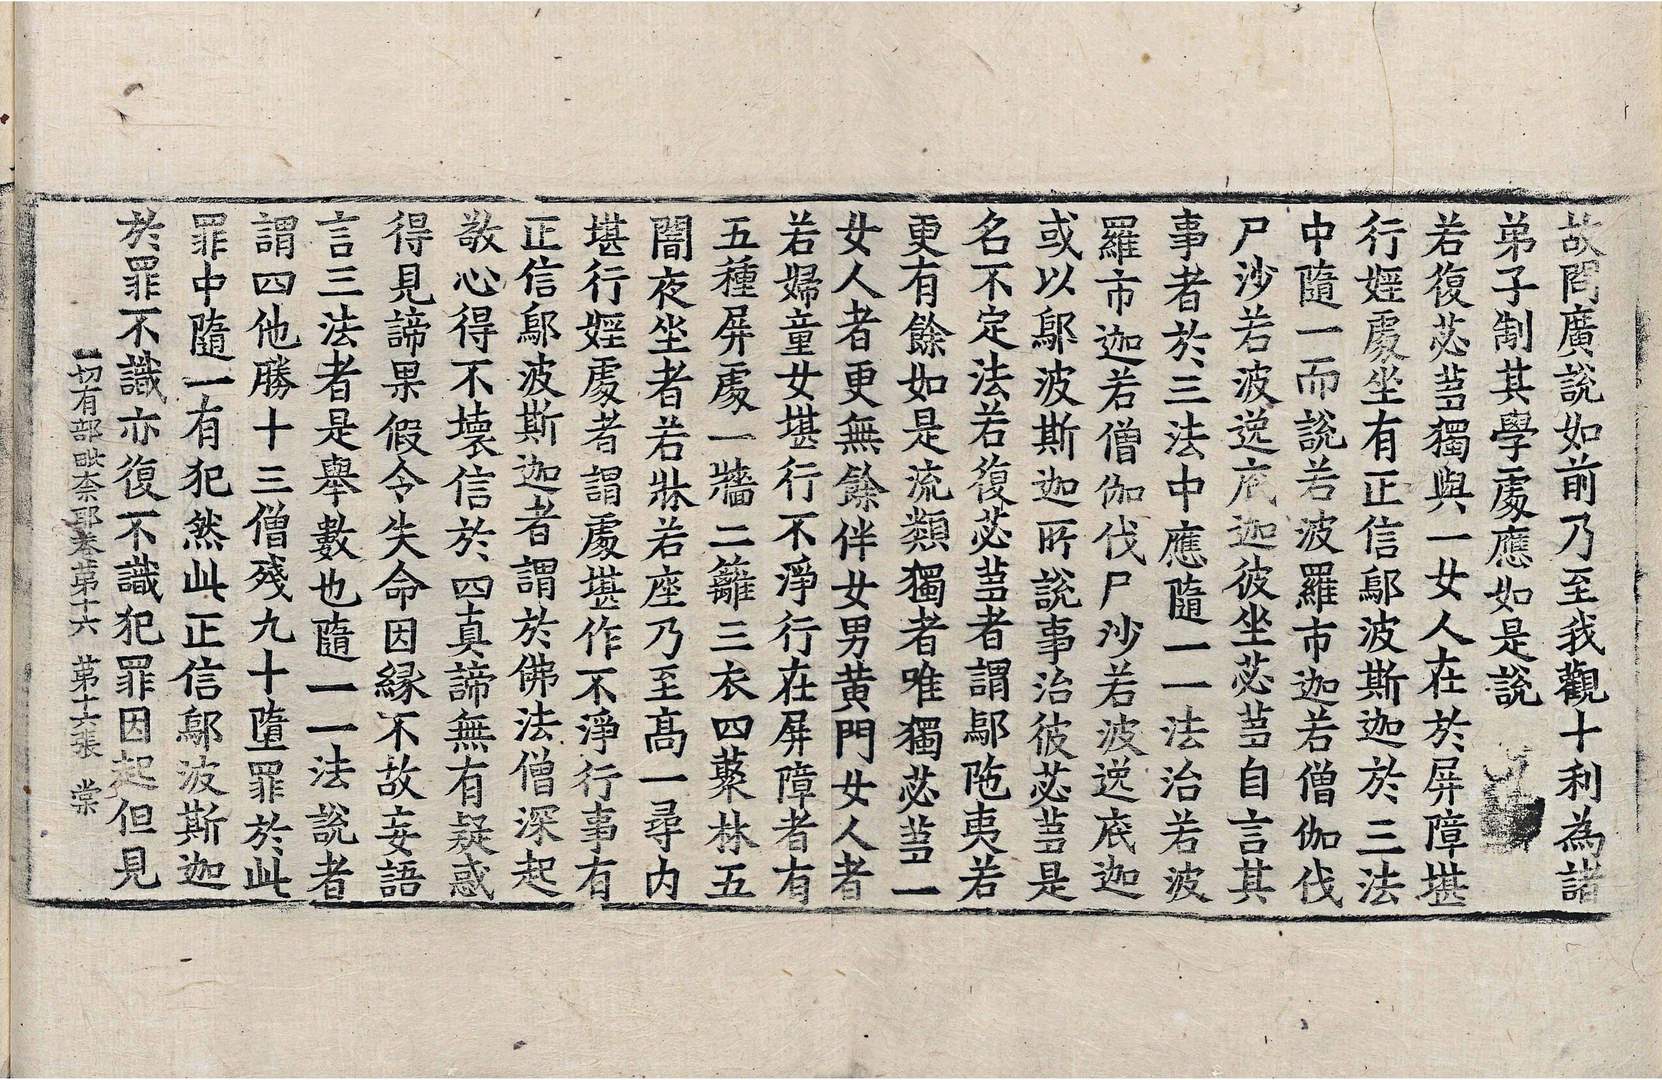 故問廣說如前乃至我觀十利為諸
弟子制其學處應如是說
若復苾蒭獨與一女人在於屏障堪
行婬處坐有正信鄔波斯迦於三法
中隨一而說若波羅市迦若僧伽伐
尸沙若波逸底迦彼坐苾蒭自言其
事者於三法中應隨一一法治若波
羅市迦若僧伽伐尸沙若波逸底迦
或以鄔波斯迦所說事治彼苾蒭是
名不定法若復苾蒭者謂鄔陁夷若
更有餘如是流類獨者唯獨苾蒭一
女人者更無餘伴女男黄門女人者
若婦童女堪行不淨行在屏障者有
五種屏處一牆二籬三衣四藂林五
闇夜坐者若牀若座乃至髙一尋内
堪行婬處者謂處堪作不淨行事有
正信鄔波斯迦者謂於佛法僧深起
敬心得不壞信於四真諦無有疑惑
得見諦果假令失命因緣不故妄語
言三法者是舉數也隨一一法說者
謂四他勝十三僧殘九十墮罪於此
罪中隨一有犯然此正信鄔波斯迦
於罪不識亦復不識犯罪因起但見
一切有部毗奈耶卷第十六 第十六張 棠